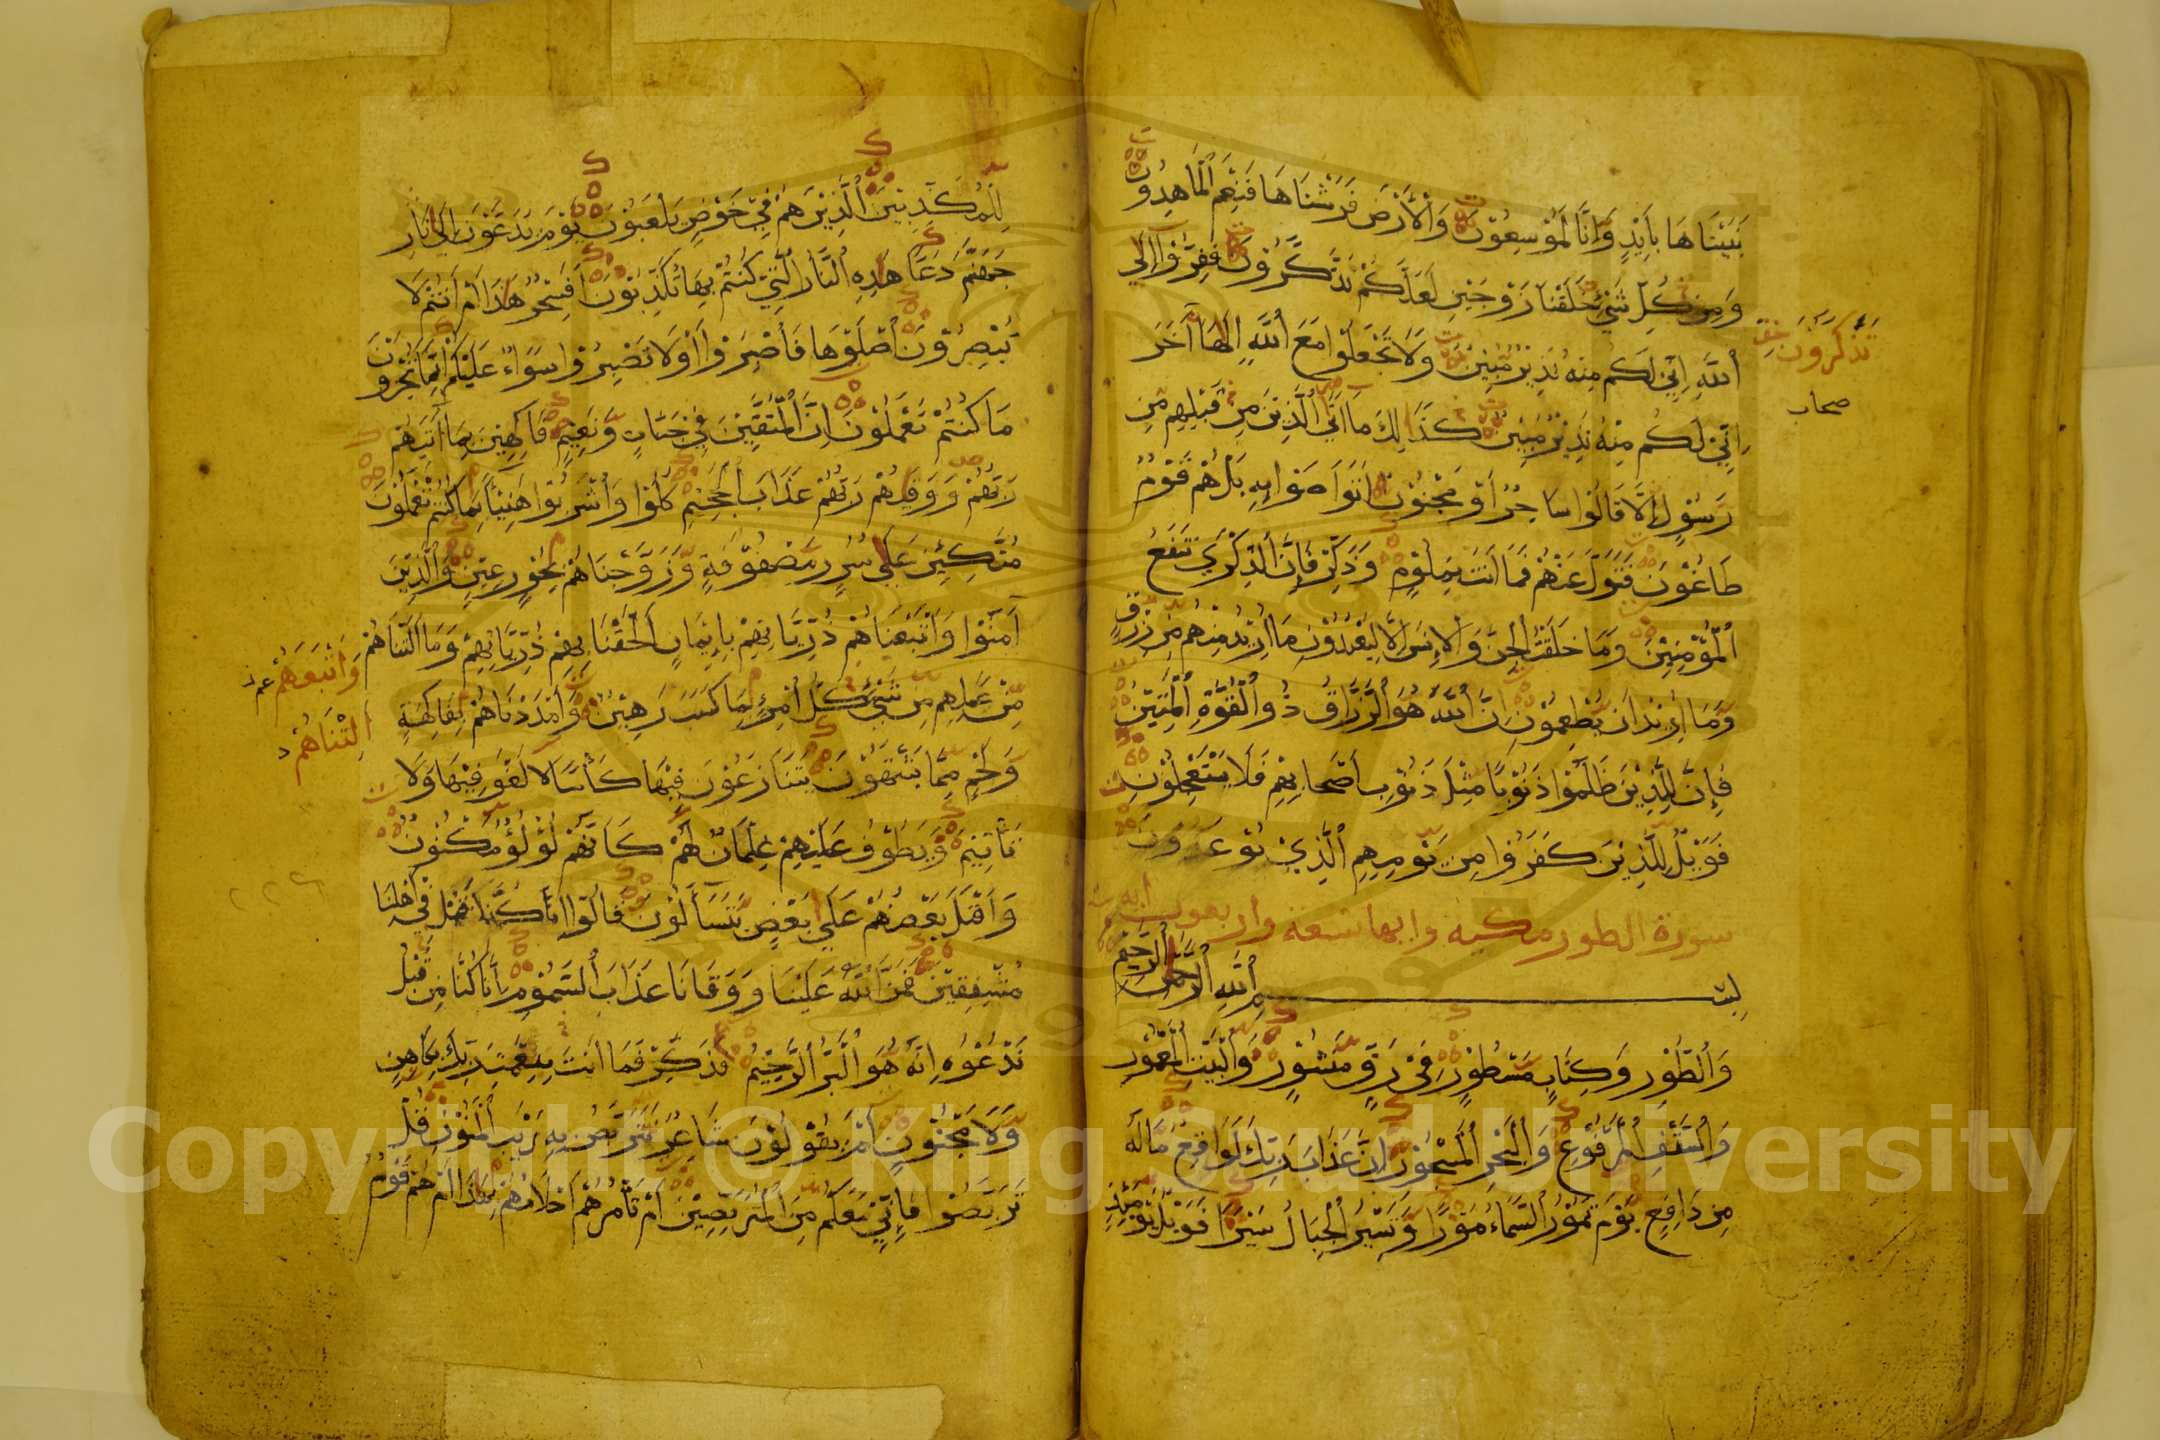 بَنَيْنَاهَا بِأَيْدٍ وَإِنَّا لَمُوْسِعُوْنَ وَالْأَرْضَ فَرَشْنَاهَا فَنِعْمَ الْمَاهِدُونَ
وَمِنْ كُلِّ شَيْءٍ خَلَقْنَا زَوْجَيْنِ لَعَلَّكُمْ تَذَّكَّرُوْنَ فَفِرُّوْا إِلَى
اللَّهِ إِنِّي لَكُمْ مِنْهُ نَذِيْرٌ مُبِيْنٌ وَلَا تَجْعَلُوْا مَعَ اللَّهِ إِلَهًا آخَرَ
إِنِّي لَكُمْ مِنْهُ نَذِيْرٌ مُبِيْنٌ كَذَلِكَ مَا أَتَى الَّذِيْنَ مِنْ قَبْلِهِمْ مِنْ
رَسُوْلٍ إِلَّا قَالُوْا سَاحِرٌ أَوْ مَجْنُوْنٌ أَتَوَاصَوْا بِهِ بَلْ هُمْ قَوْمٌ
طَاغُوْنَ فَتَوَلَّ عَنْهُمْ فَمَا أَنْتَ بِمَلُوْمٍ وَذَكِّرْ فَإِنَّ الذِّكْرَى تَنْفَعُ
الْمُؤْمِنِيْنَ وَمَا خَلَقْتُ الْجِنَّ وَالْإِنْسَ إِلَّا لِيَعْبُدُوْنِ مَا أُرِيْدُ مِنْهُمْ مِنْ رِزْقٍ
وَمَا أُرِيْدُ أَنْ يُطْعِمُوْنِ إِنَّ اللَّهَ هُوَ الرَّزَّاقُ ذُو الْقُوَّةِ الْمَتِيْنُ
فَإِنَّ لِلَّذِيْنَ ظَلَمُوْا ذَنُوْبًا مِثْلَ ذَنُوْبِ أَصْحَابِهِمْ فَلَا يَسْتَعْجِلُوْنِ
فَوَيْلٌ لِلَّذِيْنَ كَفَرُوْا مِنْ يَوْمِهِمُ الَّذِيْ يُوْعَدُوْنَ
سورة الطور مكية وايها تسعة واربعون اية
بِسْمِ اللَّهِ الرَّحْمَنِ الرَّحِيْمِ
وَالطُّوْرِ وَكِتَابٍ مَسْطُوْرٍ فِيْ رَقٍّ مَنْشُوْرٍ وَالْبَيْتِ الْمَعْمُوْرِ
وَالسَّقْفِ الْمَرْفُوْعِ وَالْبَحْرِ الْمَسْجُوْرِ إِنَّ عَذَابَ رَبِّكَ لَوَاقِعٌ مَا لَهُ
مِنْ دَافِعٍ يَوْمَ تَمُوْرُ السَّمَاءُ مَوْرًا وَتَسِيْرُ الْجِبَالُ سَيْرًا فَوَيْلٌ يَوْمَئِذٍ
تَذَكَّرُونَ
صحاب
لِلْمُكَذِّبِيْنَ الَّذِيْنَ هُمْ فِيْ خَوْضٍ يَلْعَبُوْنَ يَوْمَ يُدَعُّوْنَ إِلَى نَارِ
جَهَنَّمَ دَعًّا هَذِهِ النَّارُ الَّتِيْ كُنْتُمْ بِهَا تُكَذِّبُوْنَ أَفَسِحْرٌ هَذَا أَمْ أَنْتُمْ لَا
تُبْصِرُوْنَ اصْلَوْهَا فَاصْبِرُوْا أَوْ لَا تَصْبِرُوْا سَوَاءٌ عَلَيْكُمْ إِنَّمَا تُجْزَوْنَ
مَا كُنْتُمْ تَعْمَلُوْنَ إِنَّ الْمُتَّقِيْنَ فِيْ جَنَّاتٍ وَنَعِيْمٍ فَاكِهِيْنَ بِمَا آتَيهُمْ
رَبُّهُمْ وَوَقَيهُمْ رَبُّهُمْ عَذَابَ الْجَحِيْمِ كُلُوْا وَاشْرَبُوْا هَنِيْئًا بِمَا كُنْتُمْ تَعْمَلُوْنَ
مُتَّكِئِيْنَ عَلَى سُرُرٍ مَصْفُوْفَةٍ وَزَوَّجْنَاهُمْ بِحُوْرٍ عِيْنٍ وَالَّذِيْنَ
آمَنُوْا وَأَتْبَعْنَاهُمْ ذُرِّيَّاتِهِمْ بِإِيْمَانٍ أَلْحَقْنَا بِهِمْ ذُرِّيَّاتِهِمْ وَمَا أَلَتْنَاهُمْ
مِنْ عَمَلِهِمْ مِنْ شَيْءٍ كُلُّ امْرِئٍ بِمَا كَسَبَ رَهِيْنٌ وَأَمْدَدْنَاهُمْ بِفَاكِهَةٍ
وَلَحْمٍ مِمَّا يَشْتَهُوْنَ يَتَنَازَعُوْنَ فِيْهَا كَأْسًا لَا لَغْوَ فِيْهَا وَلَا
تَأْثِيْمَ وَيَطُوْفُ عَلَيْهِمْ غِلْمَانٌ لَهُمْ كَأَنَّهُمْ لُؤْلُؤٌ مَكْنُوْنٌ
وَأَقْبَلَ بَعْضُهُمْ عَلَى بَعْضٍ يَتَسَاءَلُوْنَ قَالُوْا إِنَّا كُنَّا قَبْلُ فِيْ أَهْلِنَا
مُشْفِقِيْنَ فَمَنَّ اللَّهُ عَلَيْنَا وَوَقَانَا عَذَابَ السَّمُوْمِ إِنَّا كُنَّا مِنْ قَبْلُ
نَدْعُوْهُ إِنَّهُ هُوَ الْبَرُّ الرَّحِيْمُ فَذَكِّرْ فَمَا أَنْتَ بِنِعْمَتِ رَبِّكَ بِكَاهِنٍ
وَلَا مَجْنُوْنٍ أَمْ يَقُوْلُوْنَ شَاعِرٌ نَتَرَبَّصُ بِهِ رَيْبَ الْمَنُوْنِ قُلْ
تَرَبَّصُوْا فَإِنِّيْ مَعَكُمْ مِنَ الْمُتَرَبِّصِيْنَ أَمْ تَأْمُرُهُمْ أَحْلَامُهُمْ بِهَذَا أَمْ هُمْ قَوْمٌ
وَاتَّبَعَتْهُمْ
أَلِتْنَاهُمْ
Copyright © King Saud University